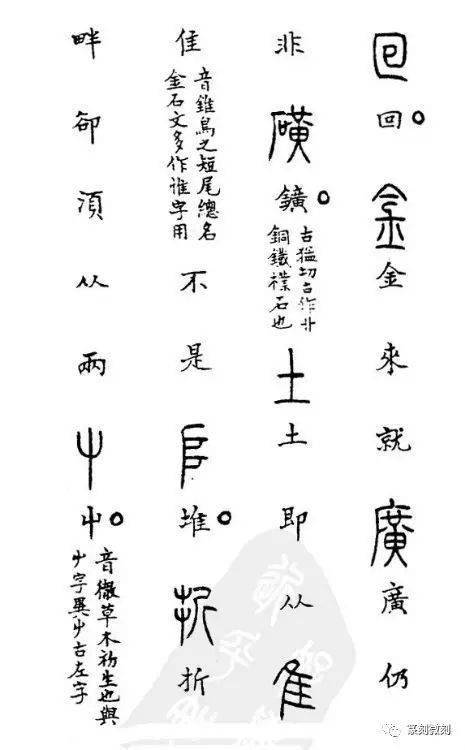 回回。金金來就廣廣仍
非礦鑛。
古猛切古作卝
銅鐵樸石也
土土即从隹
隹
音錐鳥之短尾總名
金石文多作惟字用
不是𠂤堆。折折
畔卻須从兩屮屮。
音徹草木初生也與
屮字異屮古左字
篆刻微刻